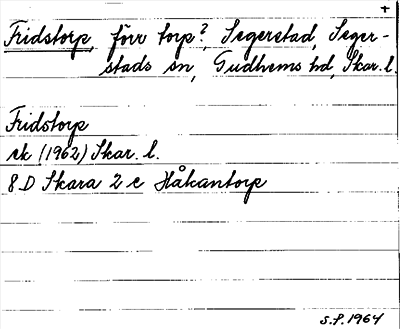 +
Fridstorp, förr torp?, Segerstad, Seger-
stads sn, Gudhems hd, Skar. l.
Fridstorp
ek (1962) Skar. l.
8 D Skara 2 e Håkantorp
S.P. 1964